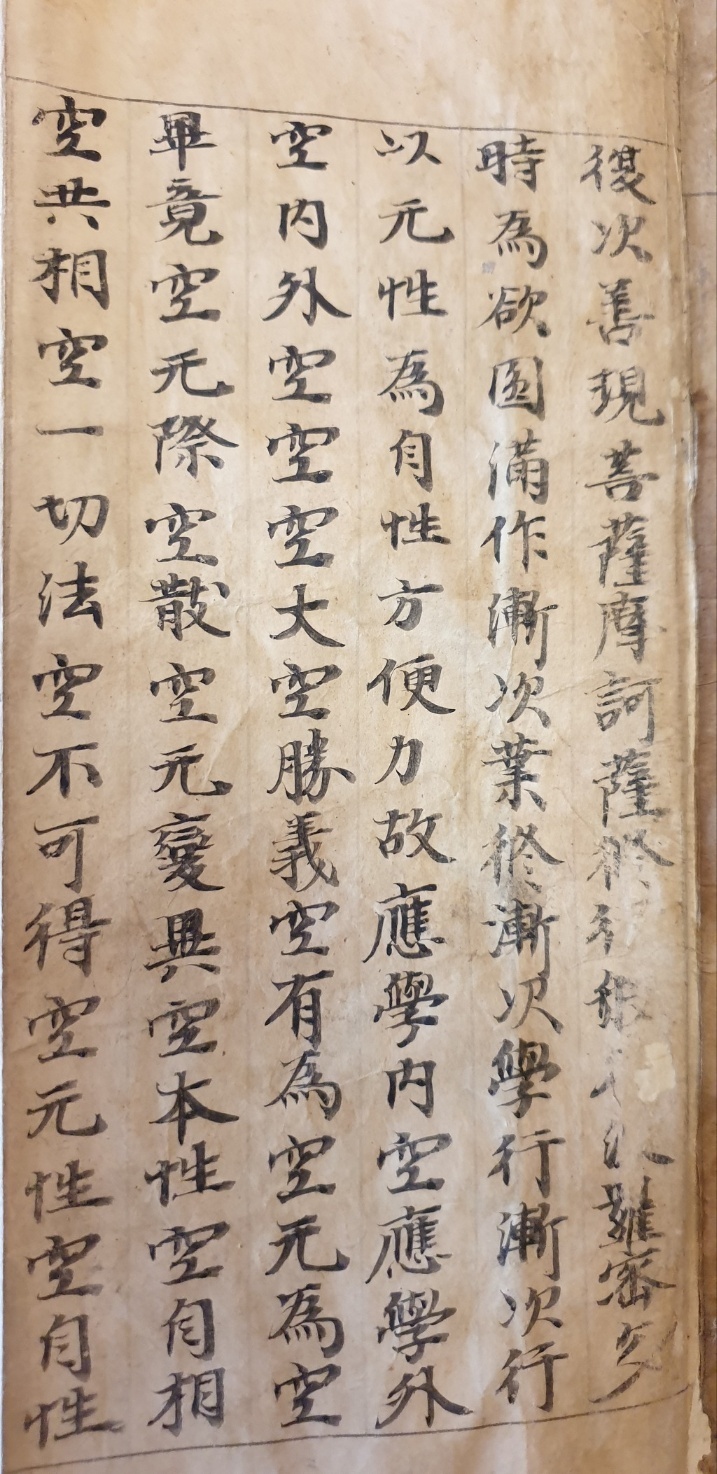 復次善現菩薩摩訶薩修行般 羅蜜多
時為欲圆滿作漸次業修漸次學行漸次行
以无性為自性方便力故應學內空應學外
空内外空空空大空勝義空有為空无為空
畢竟空无際空散空无變異空本性空自相
空共相空一切法空不可得空无性空自性